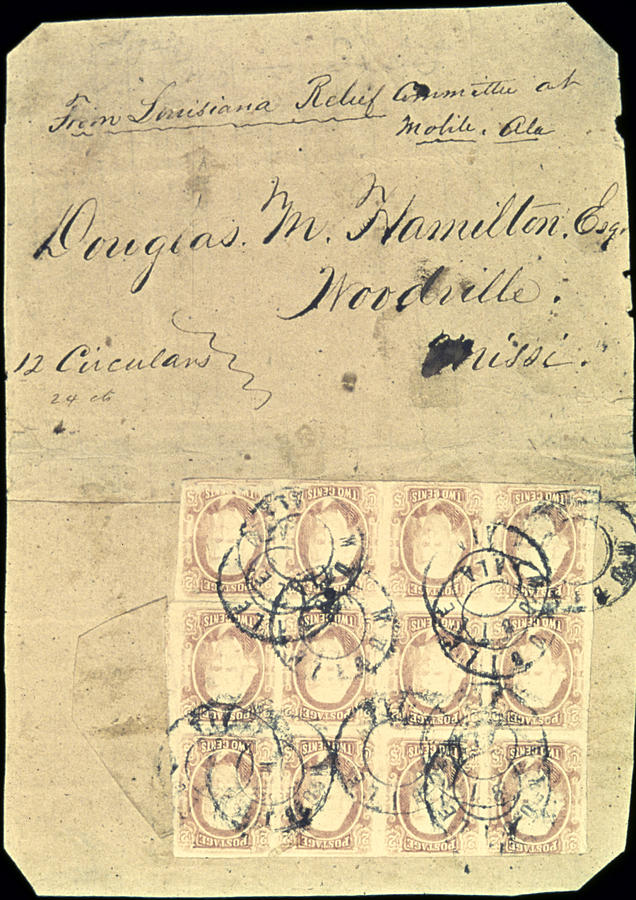 From Louisiana Relief Committee at
Mobile. Ala
Douglas. M. Hamilton. Esq.
Woodville.
Missi.
12 Circulars
24 cts
TWO CENTS TWO CENTS TWO CENTS TWO CENTS
POSTAGE POSTAGE POSTAGE POSTAGE
TWO CENTS TWO CENTS TWO CENTS TWO CENTS
POSTAGE POSTAGE POSTAGE POSTAGE
TWO CENTS TWO CENTS TWO CENTS TWO CENTS
POSTAGE POSTAGE POSTAGE POSTAGE
MOBILE ALA